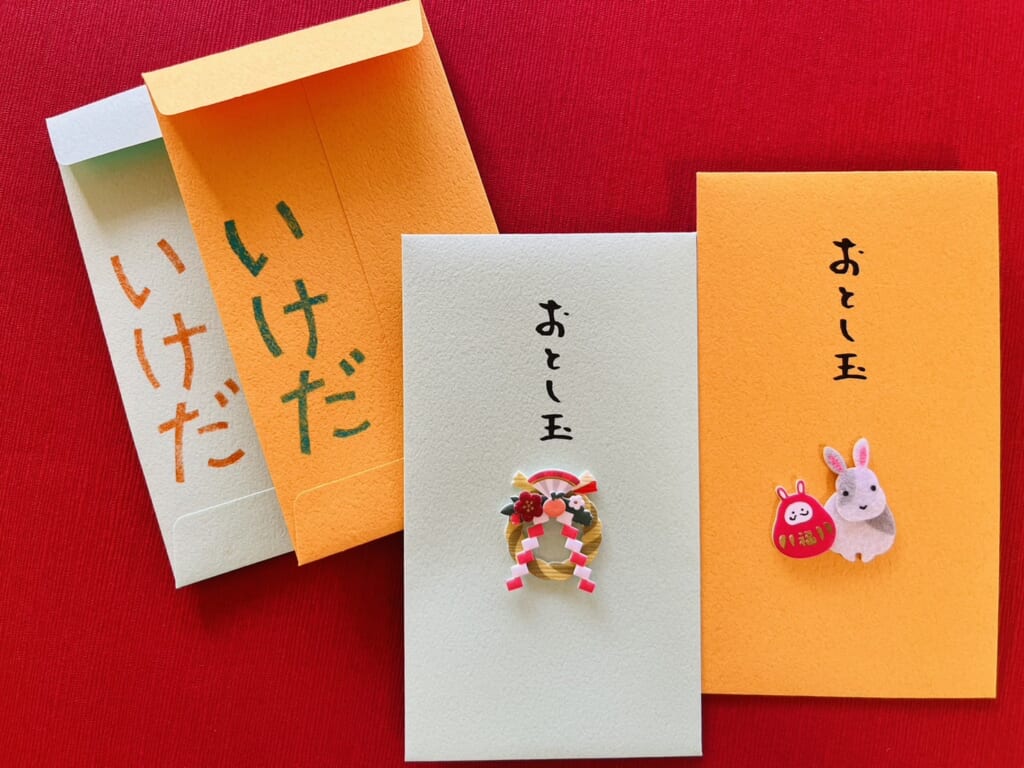 いけだ
いけだ
おとし玉
おとし玉
福